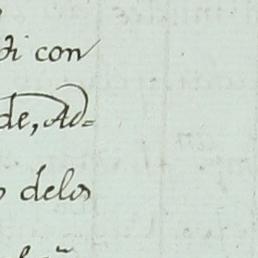 di con
de, Ad=
o delos